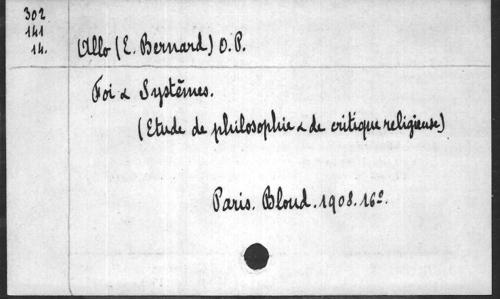 302
141
14.
Allo (E. Bernard) O.P.
Foi & Systèmes.
(Etude de philosophie & de critique religieuse)
Paris. Bloud. 1908. 16º.